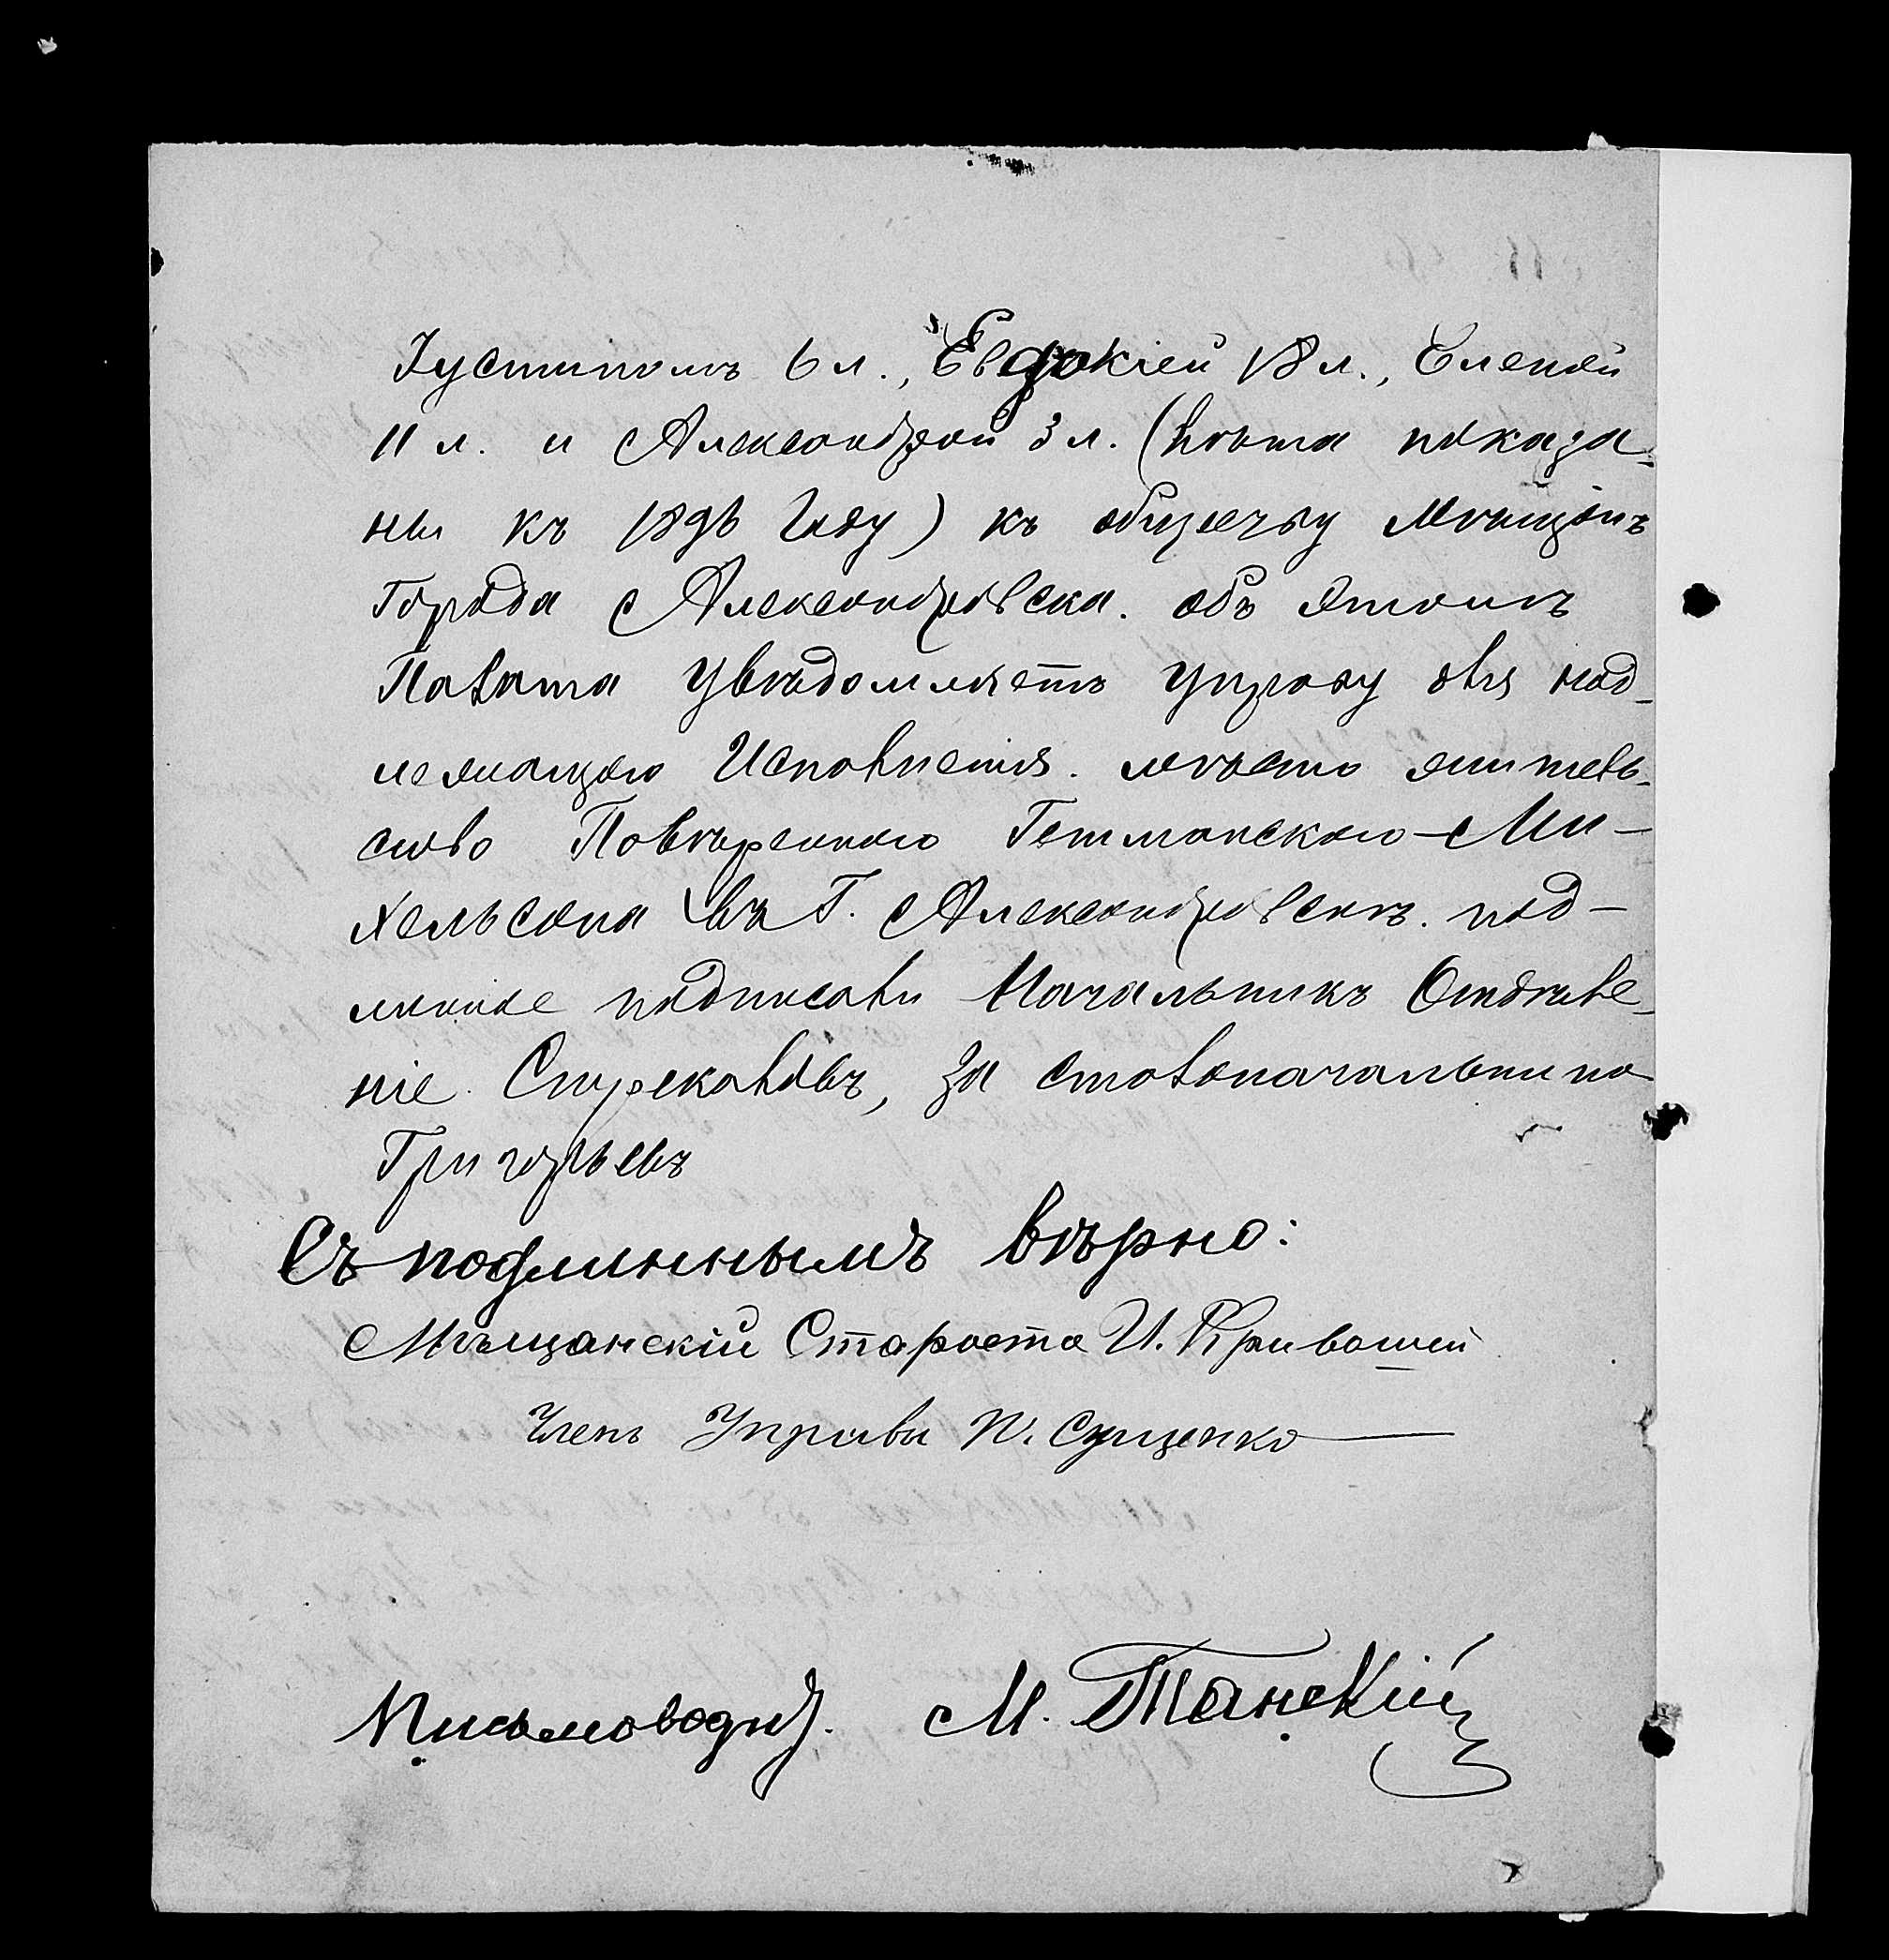 Іустиномъ 6 л., Евдокіей 18 л., Еленой
11 л. и Александрой 3 л. (лѣта показа-
ны къ 1896 году) къ обществу мѣщанъ
города Александровска. объ этомъ
Палата увѣдомляетъ управу для над-
лежащаго Исполненія. мѣсто житель-
ство Повѣреннаго Гетманскаго-Ми-
хельсона въ Г. Александровскѣ. под-
линное подписали Начальникъ Отдѣле-
ніе Стрекаловъ, за столоначальника
Григорьевъ
Съ подлиннымъ вѣрно:
Мѣщанскій Староста И. Кривошей
Членъ Управы П. Сущенко
Письмоводит. М. Танскій